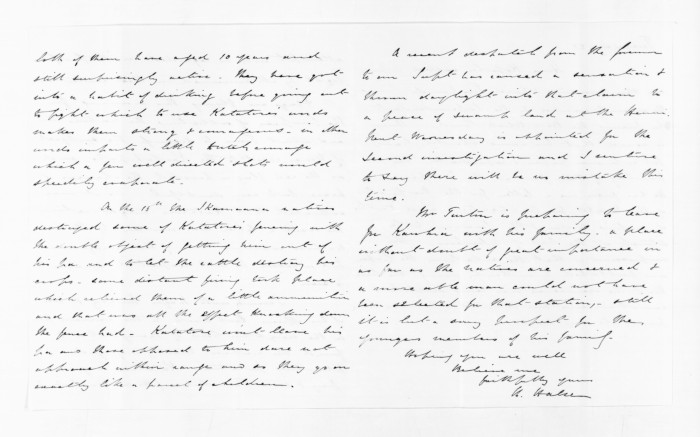 both of them have aged 10 years and
still surprisingly active. They have got
into a habit of drinking before going out
to fight which to use Katatore's words
makes them strong & courageous. in other
words imparts a little Dutch courage
which a few well directed shots would
speedily evaporate.
On the 18th the Ikamoana natives
destroyed some of Katatore's fencing with
the double object of getting him out of
his pa and to let the cattle destroy his
crops. some distant firing took place
which relieved them of a little ammunition
and that was all the effect knocking down
the fence had. Katatore wont leave his
pa and those opposed to him dare not
approach within range and so they go on
exactly like a parcel of children.
A recent despatch from the
to our Supt has caused a sensation &
thrown daylight into that claim to
a piece of swamp land at the Henui.
Next Wednesday is appointed for the
second investigation and I venture
to say there will be no mistake this
time.
Mr Turton is preparing to leave
for Kawhia with his family. a place
without doubt of great importance in
as far as the natives are concerned &
a more able man could not have
been selected for that station, still
it is but a sorry prospect for the
younger members of his family.
Hoping you are well
Believe me
faithfully yours
H. Halse